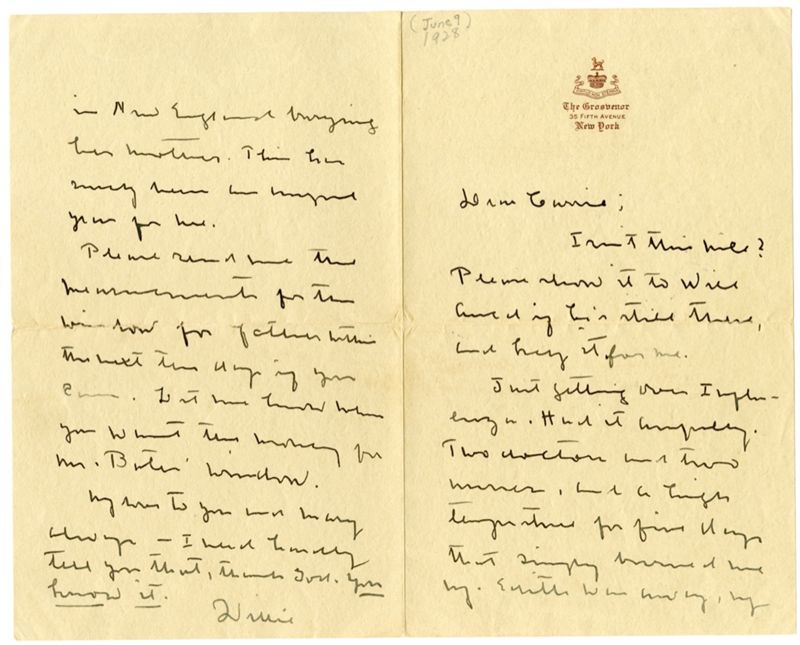 (June 9)
1928
The Grosvenor
35 Fifth Avenue
New York
Dear Carrie;
Isn't this nice?
Please show it to Will
Auld if he's still there,
and keep it for me.
Just getting over Influ-
enza. Had it awfully.
Two doctors and two
nurses, and a high
temperature for five days
that simply burned me
up. Edith was away, up
in New England burying
her mother. This has
surely been an
year for me.
Please send me the
measurements for the
window for father within
the next ten days if you
can. Let me know when
you want the money for
Mr. Bates' window.
My love to you and Mary
always — I need hardly
tell you that, thank God. You
know it.
Willie